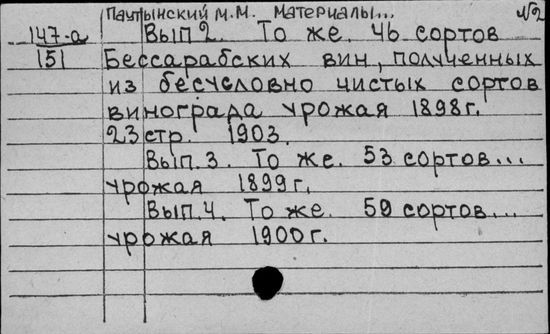 Паутынский М.М. Материалы... √2
147-а Вып 2. То же. 46 сортов
151 Бессарабских вин, полученных
из бесусловно чистых сортов
винограда урожая 1898г.
23 стр. 1903.
Вып.3. То же. 53 сортов...
урожая 1899г.
Вып.4. То же. 59 сортов...
урожая 1900г.